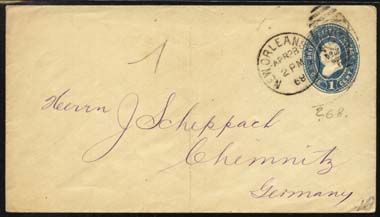 NEW ORLEANS
APR 28
2 PM
88
1
1 CENT
268.
Herrn J Scheppach
Chemnitz
Germany